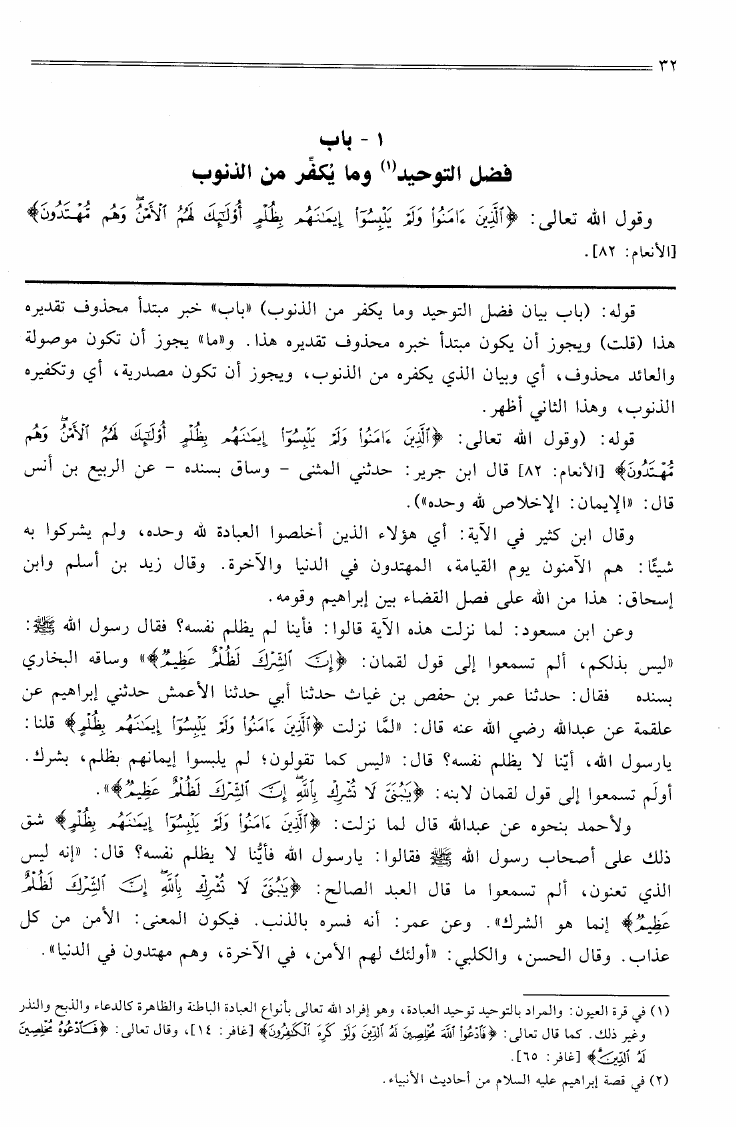 ٣٢
١ - باب
فضل التوحيد(١) وما يُكفِّر من الذنوب
وقول الله تعالى: ﴿ٱلَّذِينَ ءَامَنُوا۟ وَلَمْ يَلْبِسُوٓا۟ إِيمَـٰنَهُم بِظُلْمٍ أُو۟لَـٰٓئِكَ لَهُمُ ٱلْأَمْنُ ۖ وَهُم مُّهْتَدُونَ﴾
[الأنعام: ٨٢].
قوله: (باب بيان فضل التوحيد وما يكفر من الذنوب) «باب» خبر مبتدأ محذوف تقديره
هذا (قلت) ويجوز أن يكون مبتدأ خبره محذوف تقديره هذا. و«ما» يجوز أن تكون موصولة
والعائد محذوف، أي وبيان الذي يكفره من الذنوب، ويجوز أن تكون مصدرية، أي وتكفيره
الذنوب، وهذا الثاني أظهر.
قوله: (وقول الله تعالى: ﴿ٱلَّذِينَ ءَامَنُوا۟ وَلَمْ يَلْبِسُوٓا۟ إِيمَـٰنَهُم بِظُلْمٍ أُو۟لَـٰٓئِكَ لَهُمُ ٱلْأَمْنُ ۖ وَهُم
مُّهْتَدُونَ﴾ [الأنعام: ٨٢] قال ابن جرير: حدثني المثنى - وساق بسنده - عن الربيع بن أنس
قال: «الإيمان: الإخلاص لله وحده»).
وقال ابن كثير في الآية: أي هؤلاء الذين أخلصوا العبادة لله وحده، ولم يشركوا به
شيئًا: هم الآمنون يوم القيامة، المهتدون في الدنيا والآخرة. وقال زيد بن أسلم وابن
إسحاق: هذا من الله على فصل القضاء بين إبراهيم وقومه.
وعن ابن مسعود: لما نزلت هذه الآية قالوا: فأينا لم يظلم نفسه؟ فقال رسول الله ﷺ:
«ليس بذلكم، ألم تسمعوا إلى قول لقمان: ﴿إِنَّ ٱلشِّرْكَ لَظُلْمٌ عَظِيمٌ﴾» وساقه البخاري
بسنده فقال: حدثنا عمر بن حفص بن غياث حدثنا أبي حدثنا الأعمش حدثني إبراهيم عن
علقمة عن عبدالله رضي الله عنه قال: «لمَّا نزلت ﴿ٱلَّذِينَ ءَامَنُوا۟ وَلَمْ يَلْبِسُوٓا۟ إِيمَـٰنَهُم بِظُلْمٍ﴾ قلنا:
يارسول الله، أيّنا لا يظلم نفسه؟ قال: «ليس كما تقولون؛ لم يلبسوا إيمانهم بظلم، بشرك.
أولَم تسمعوا إلى قول لقمان لابنه: ﴿يَـٰبُنَىَّ لَا تُشْرِكْ بِٱللَّهِ ۖ إِنَّ ٱلشِّرْكَ لَظُلْمٌ عَظِيمٌ﴾».
ولأحمد بنحوه عن عبدالله قال لما نزلت: ﴿ٱلَّذِينَ ءَامَنُوا۟ وَلَمْ يَلْبِسُوٓا۟ إِيمَـٰنَهُم بِظُلْمٍ﴾ شق
ذلك على أصحاب رسول الله ﷺ فقالوا: يارسول الله فأيُّنا لا يظلم نفسه؟ قال: «إنه ليس
الذي تعنون، ألم تسمعوا ما قال العبد الصالح: ﴿يَـٰبُنَىَّ لَا تُشْرِكْ بِٱللَّهِ ۖ إِنَّ ٱلشِّرْكَ لَظُلْمٌ
عَظِيمٌ﴾ إنما هو الشرك». وعن عمر: أنه فسره بالذنب. فيكون المعنى: الأمن من كل
عذاب. وقال الحسن، والكلبي: «أولئك لهم الأمن، في الآخرة، وهم مهتدون في الدنيا».
(١) في قرة العيون: والمراد بالتوحيد توحيد العبادة، وهو إفراد الله تعالى بأنواع العبادة الباطنة والظاهرة كالدعاء والذبح والنذر
وغير ذلك. كما قال تعالى: ﴿فَٱدْعُوا۟ ٱللَّهَ مُخْلِصِينَ لَهُ ٱلدِّينَ وَلَوْ كَرِهَ ٱلْكَـٰفِرُونَ﴾ [غافر: ١٤]، وقال تعالى: ﴿فَـٱدْعُوهُ مُخْلِصِينَ
لَهُ ٱلدِّينَ﴾ [غافر: ٦٥].
(٢) في قصة إبراهيم عليه السلام من أحاديث الأنبياء.